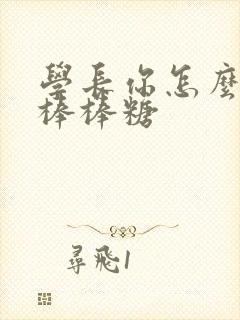 學長你怎麼
棒棒糖
尋飛1